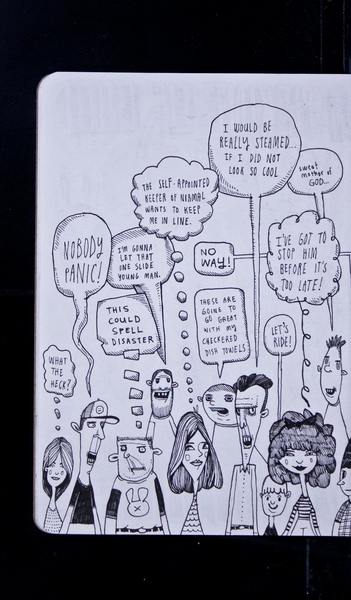 I WOULD BE
REALLY STEAMED...
IF I DID NOT
LOOK SO COOL
sweet
mother of
GOD...
THE SELF-APPOINTED
KEEPER OF NORMAL
WANTS TO KEEP
ME IN LINE.
NOBODY
PANIC!
I'M GONNA
LET THAT
ONE SLIDE
YOUNG MAN.
NO
WAY!
I'VE GOT TO
STOP HIM
BEFORE IT'S
TOO LATE!
THIS
COULD
SPELL
DISASTER
THESE ARE
GOING TO
GO GREAT
WITH MY
CHECKERED
DISH TOWELS
LET'S
RIDE!
WHAT
THE
HECK?